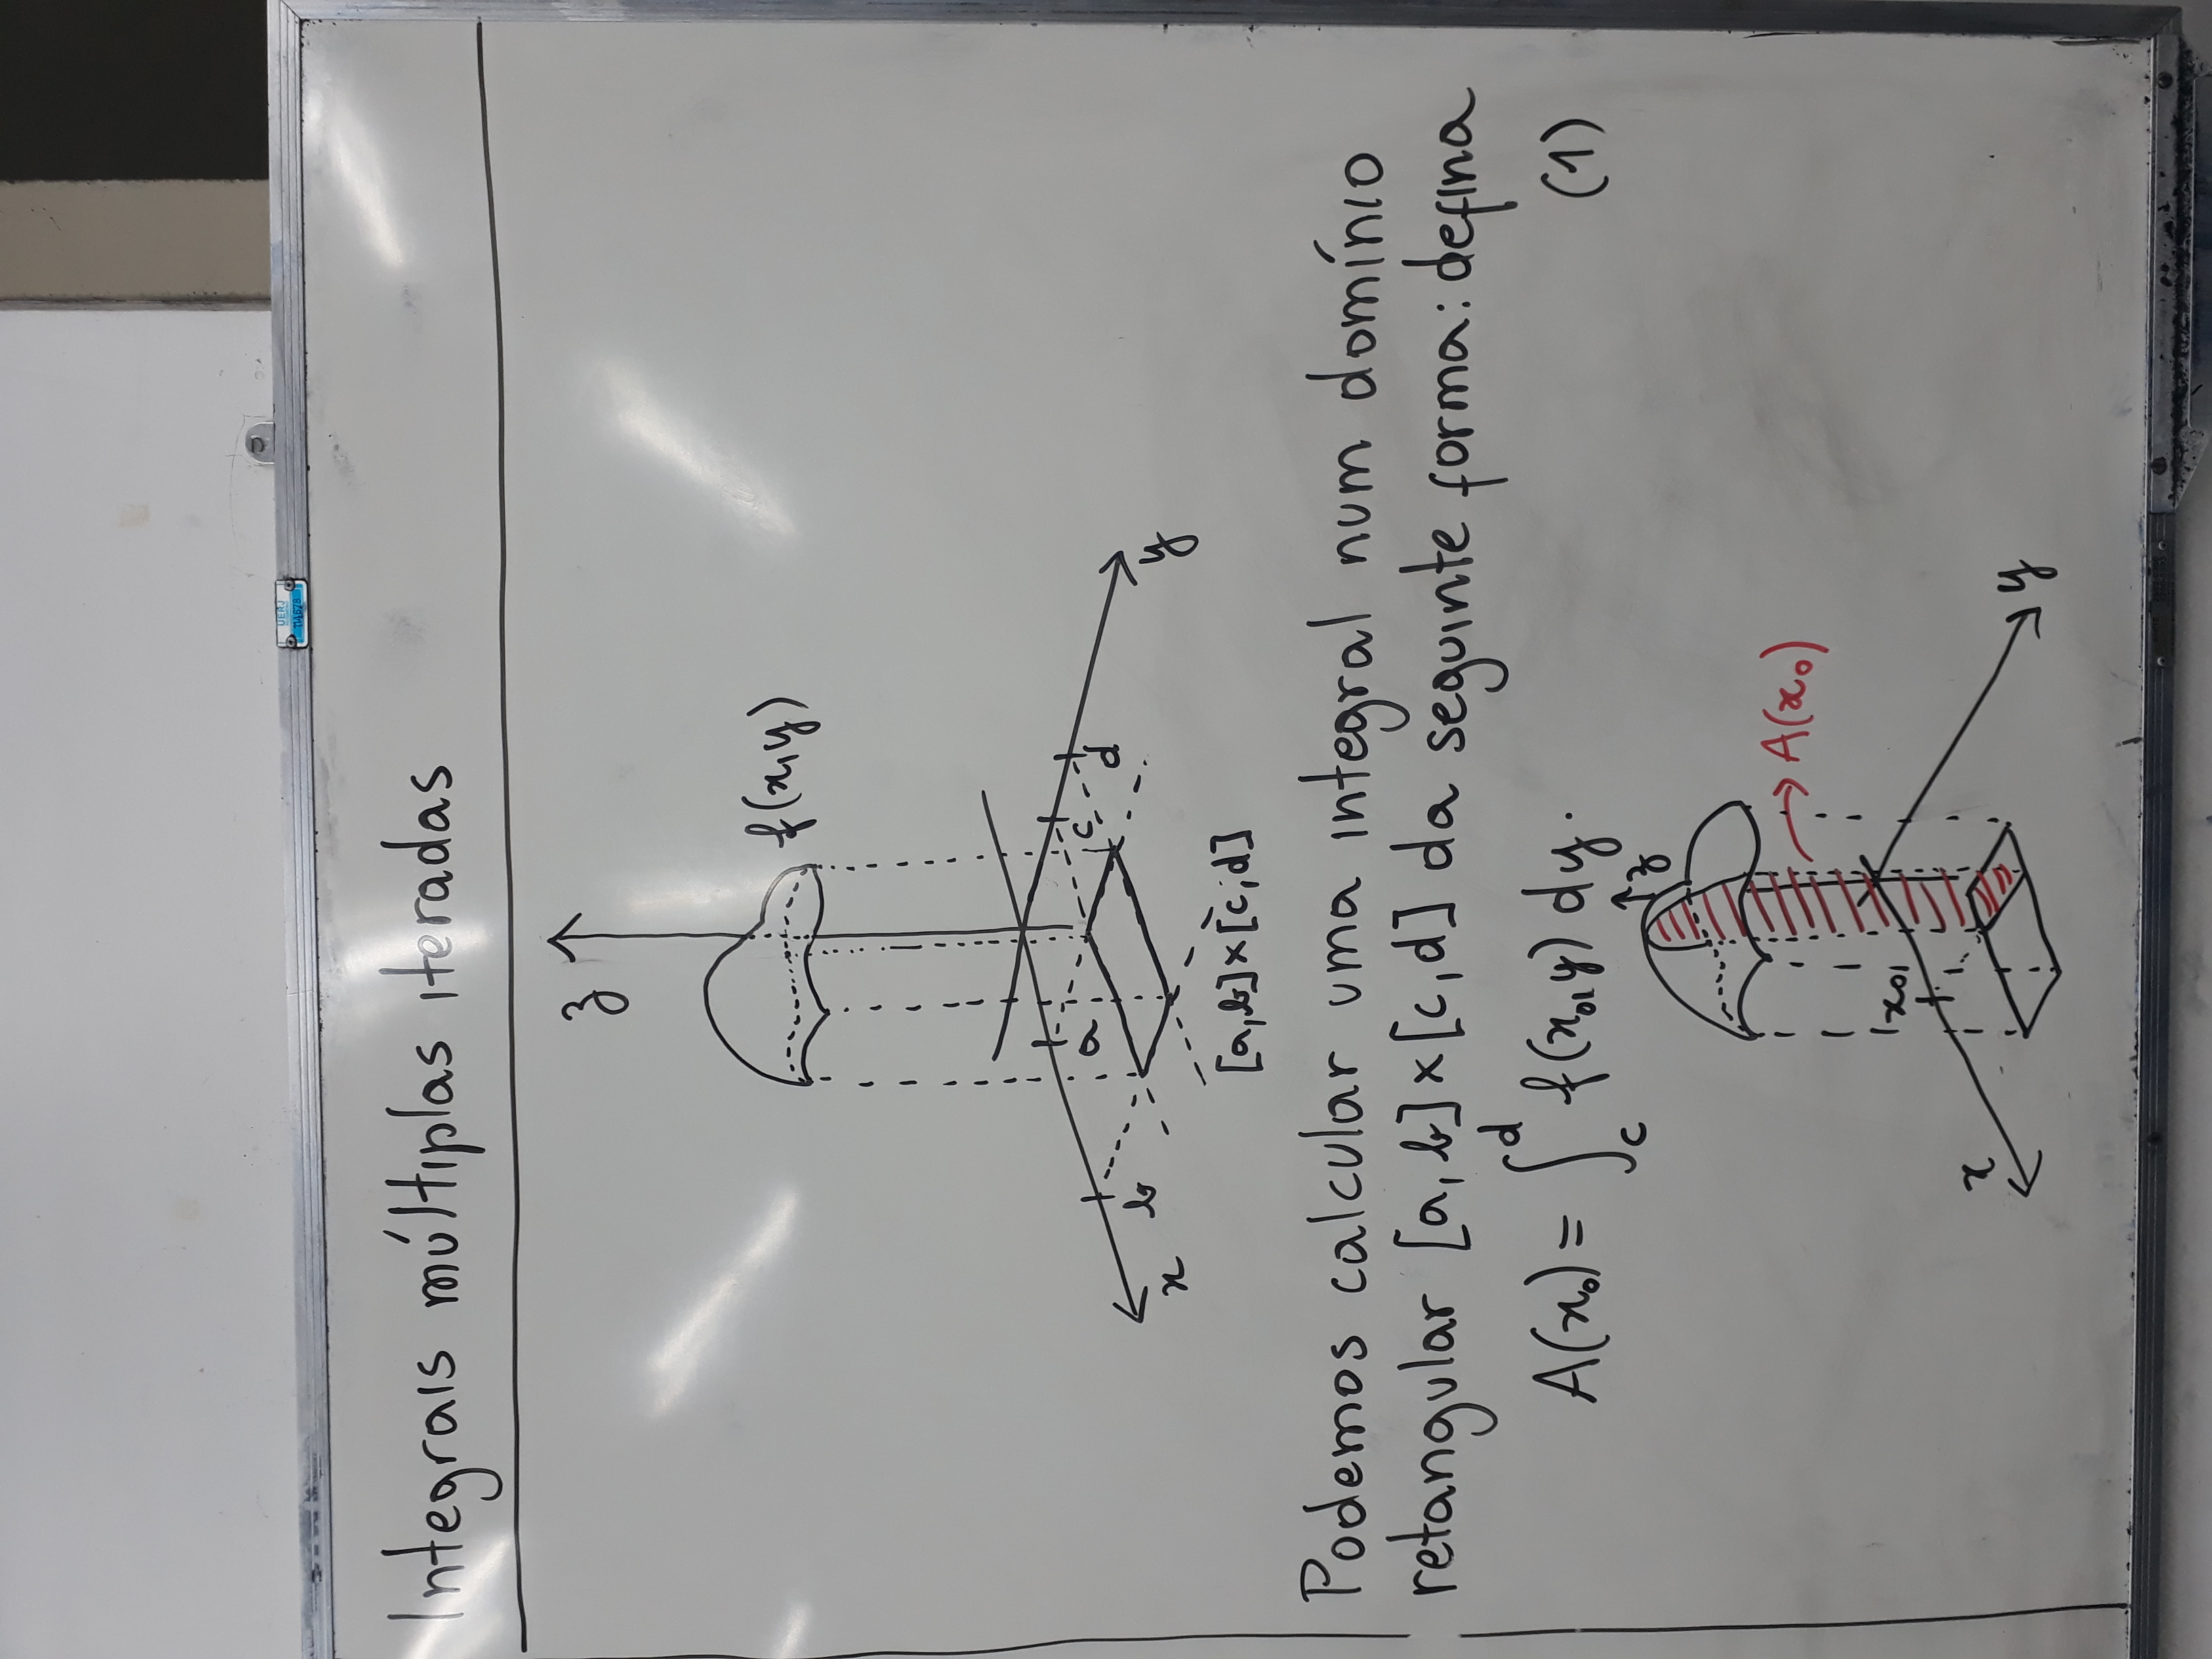 UERJ
114678
Integrais múltiplas iteradas
z
f(x,y)
a
c
b
d
x
y
[a,b]×[c,d]
Podemos calcular uma integral num domínio
retangular [a,b]×[c,d] da seguinte forma: defina
A(x₀) = ∫_c^d f(x₀,y) dy. (1)
z
A(x₀)
x₀
x
y